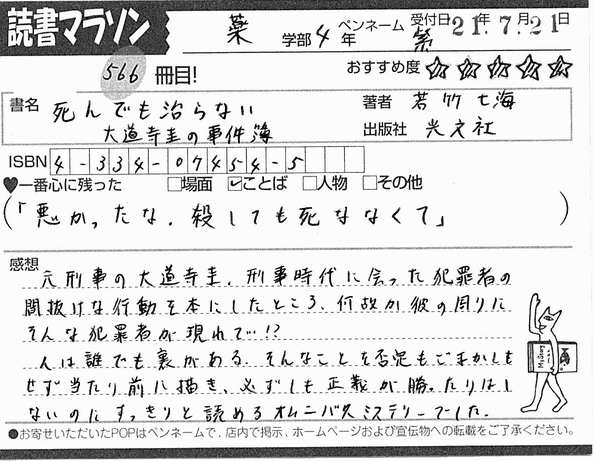 読書マラソン
薬 学部 4 年 ペンネーム 紫 受付日 21年.7月.21日
566 冊目!
おすすめ度 ☆☆☆☆☆
書名 死んでも治らない
大道寺圭の事件簿
著者 若竹七海
出版社 光文社
ISBN 4-334-07454-5
♥一番心に残った □場面 ☑ことば □人物 □その他
(「悪かったな。殺しても死ななくて」)
感想
元刑事の大道寺圭。刑事時代に会った犯罪者の
間抜けな行動を本にしたところ、何故か彼の周りに
そんな犯罪者が現れて…!?
人は誰でも裏がある。そんなことを否定もごまかしも
せず当たり前に描き、必ずしも正義が勝ったりはし
ないのにすっきりと読めるオムニバスミステリーでした。
Mystery
●お寄せいただいたPOPはペンネームで、店内で掲示、ホームページおよび宣伝物への転載をご了承ください。